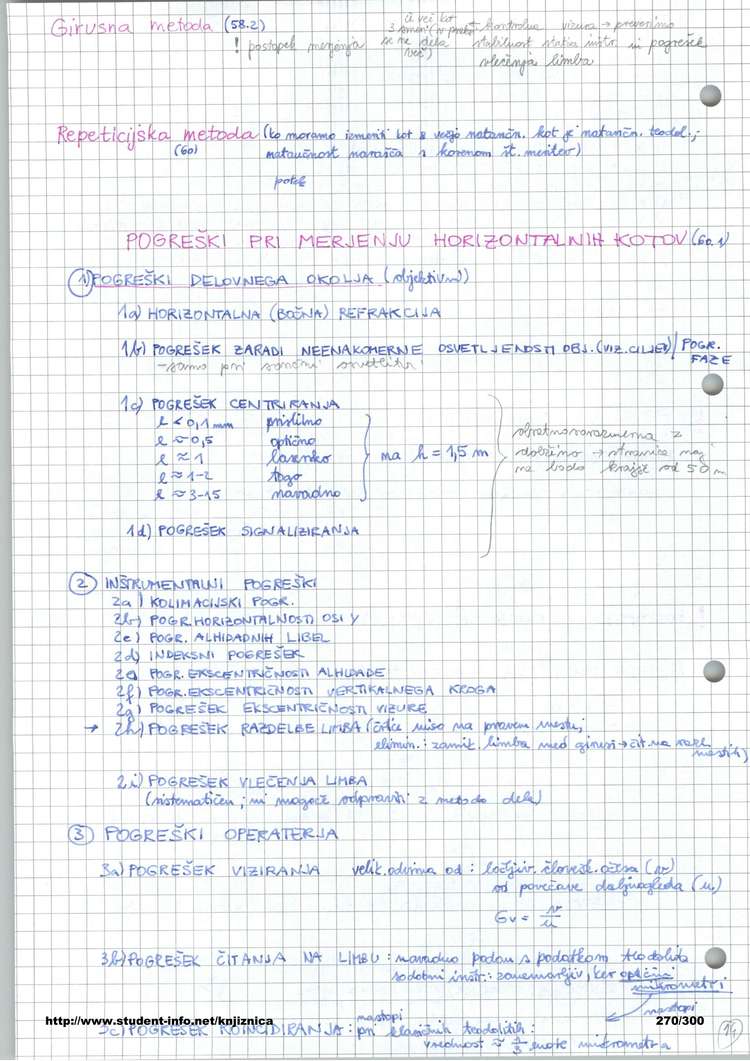 Girusna metoda (58.2)
! postopek merjenja
če več kot
se ne dela
več)
kontrolna vizura → preverimo
stabilnost stativa instr. in pogrešek
vlečenja limba
Repeticijska metoda (ko moramo izmeriti kot z večjo natančn. kot je natančn. teodol.;
(60) natančnost narašča s korenom št. meritev)
potek
POGREŠKI PRI MERJENJU HORIZONTALNIH KOTOV (60.1)
1) POGREŠKI DELOVNEGA OKOLJA (objektivni)
1a) HORIZONTALNA (BOČNA) REFRAKCIJA
1b) POGREŠEK ZARADI NEENAKOMERNE OSVETLJENOSTI OBJ. (VIZ. CILJEV) / POGR.
FAZE
- samo pri sončni svetlobi
1c) POGREŠEK CENTRIRANJA
e < 0,1 mm prisilno
e ≈ 0,5 optično
e ≈ 1 lasersko
e ≈ 1-2 togo
e ≈ 3-15 navadno
na h = 1,5 m
obratnosorazmerna z
dolžino → stranice naj
ne bodo krajše od 50 m
1d) POGREŠEK SIGNALIZIRANJA
2 INŠTRUMENTALNI POGREŠKI
2a) KOLIMACIJSKI POGR.
2b) POGR. HORIZONTALNOSTI OSI Y
2c) POGR. ALHIDADNIH LIBEL
2d) INDEKSNI POGREŠEK
2e) POGR. EKSCENTRIČNOSTI ALHIDADE
2f) POGR. EKSCENTRIČNOSTI VERTIKALNEGA KROGA
2g) POGREŠEK EKSCENTRIČNOSTI VIZURE
→ 2h) POGREŠEK RAZDELBE LIMBA (črtice niso na pravem mestu;
elimin.: zamik limba med girusi → čit. na razl.
mestih)
2i) POGREŠEK VLEČENJA LIMBA
(sistematičen; ni mogoče odpraviti z metodo dela)
3 POGREŠKI OPERATERJA
3a) POGREŠEK VIZIRANJA velik. odvisna od: ločljiv. človešk. očesa (v)
od povečave daljnogleda (u)
σv = v/u
3b) POGREŠEK ČITANJA NA LIMBU: navadno podan s podatkom teodolita
sodobni instr.: zanemarljiv, ker optični
mikrometri
nastopi
http://www.student-info.net/knjiznica
270/300
nastopi
3c) POGREŠEK KOINCIDIRANJA: pri klasičnih teodolitih:
vrednost ≈ enote mikrometra
14